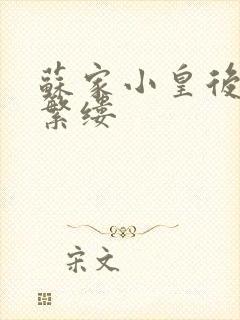 蘇家小皇後
繁缕
宋文